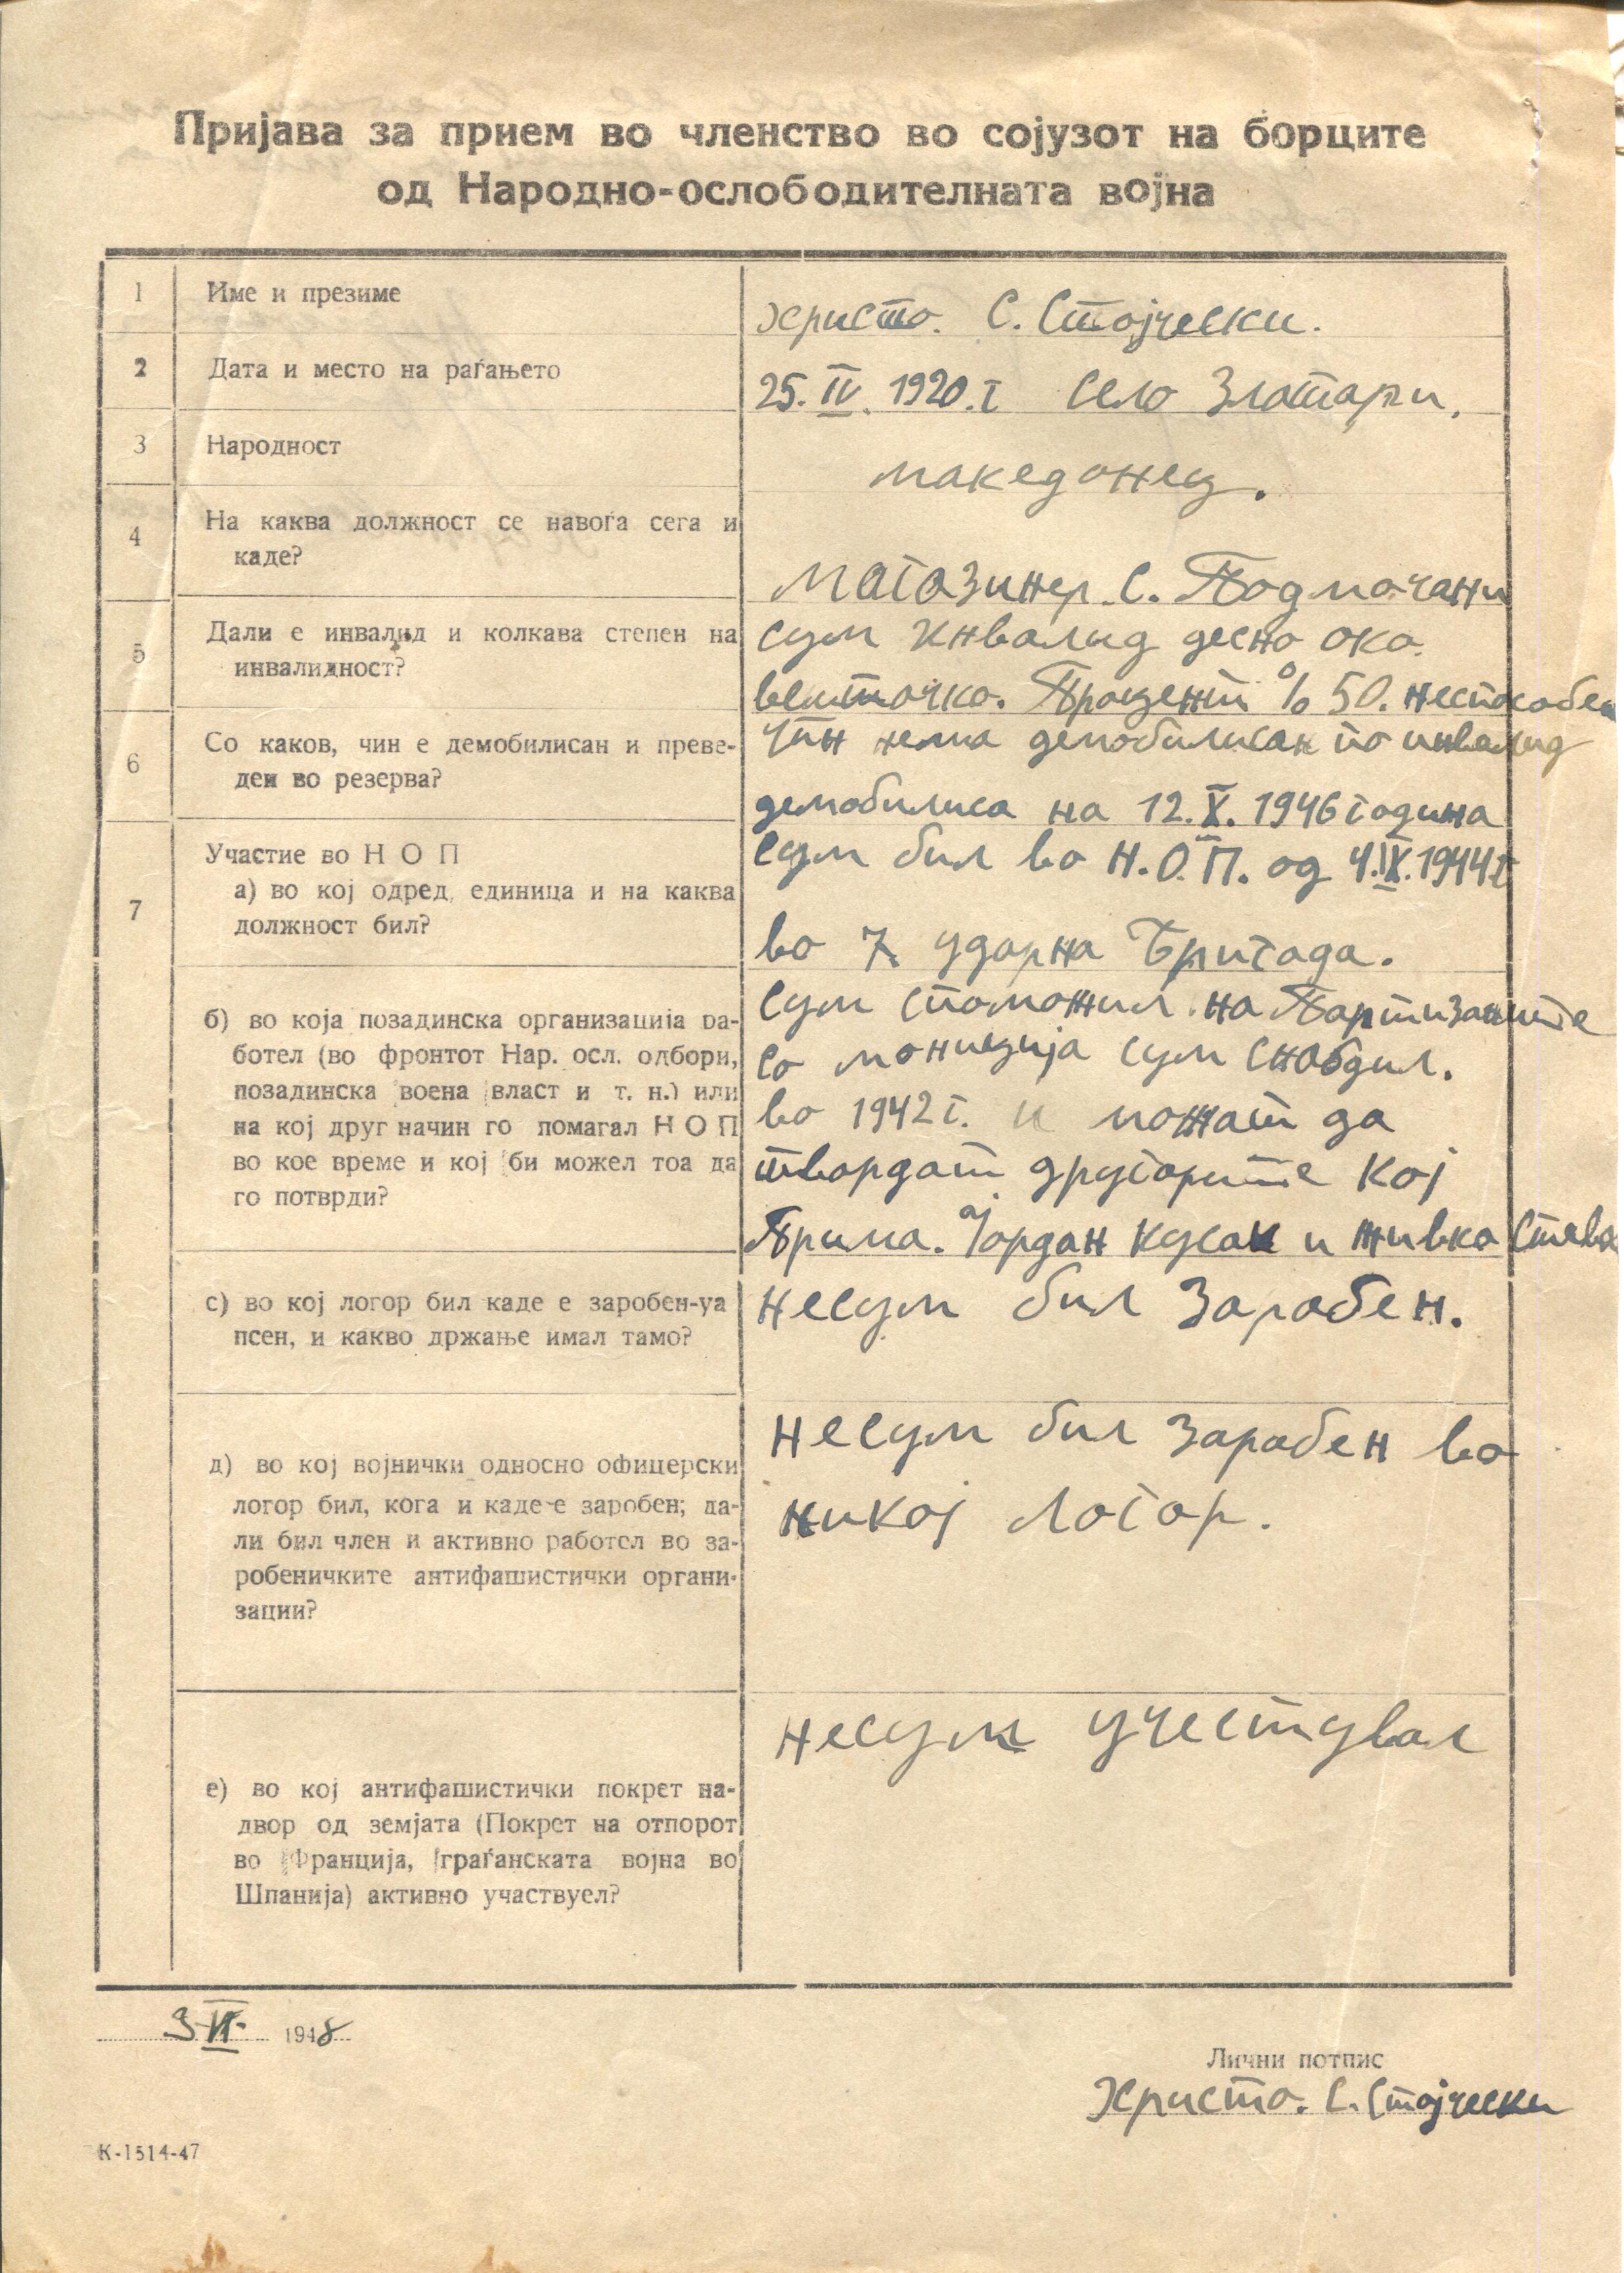 Пријава за прием во членство во сојузот на борците
од Народно-ослободителната војна
1 Име и презиме
Христо. С. Стојчески.
2 Дата и место на раѓањето
25. IV. 1920. г село Златари.
3 Народност
македонец.
4 На каква должност се навоѓа сега и
каде?
магазинер. С. Подмочани
5 Дали е инвалид и колкава степен на
инвалидност?
сум инвалид десно око.
Процент % 50. неспособен
6 Со каков, чин е демобилисан и преве-
ден во резерва?
Чин нема демобилисан по инвалид
демобилиса на 12. X. 1946 година
7 Участие во Н О П
а) во кој одред, единица и на каква
должност бил?
сум бил во Н.О.П. од 4. IX. 1944 г
во 7 ударна Бригада.
б) во која позадинска организација ра-
ботел (во фронтот Нар. осл. одбори,
позадинска воена власт и т. н.) или
на кој друг начин го помагал Н О П
во кое време и кој би можел тоа да
го потврди?
сум споможил на Партизаните
со мониција сум снабдил.
во 1942 г. и можат да
твордат другарите кој
Прима. Јордан Кусак и Живко Стева
с) во кој логор бил каде е заробен-уа
псен, и какво држање имал тамо?
несум бил заробен.
д) во кој војнички односно офицерски
логор бил, кога и каде е заробен; да-
ли бил член и активно работел во за-
робеничките антифашистички органи-
зации?
несум бил заробен во
никој логор.
е) во кој антифашистички покрет на-
двор од земјата (Покрет на отпорот
во Франција, граѓанската војна во
Шпанија) активно участвуел?
несум учествувал
3 VI. 1948
Лични потпис
Христо. С. Стојчески
К-1514-47